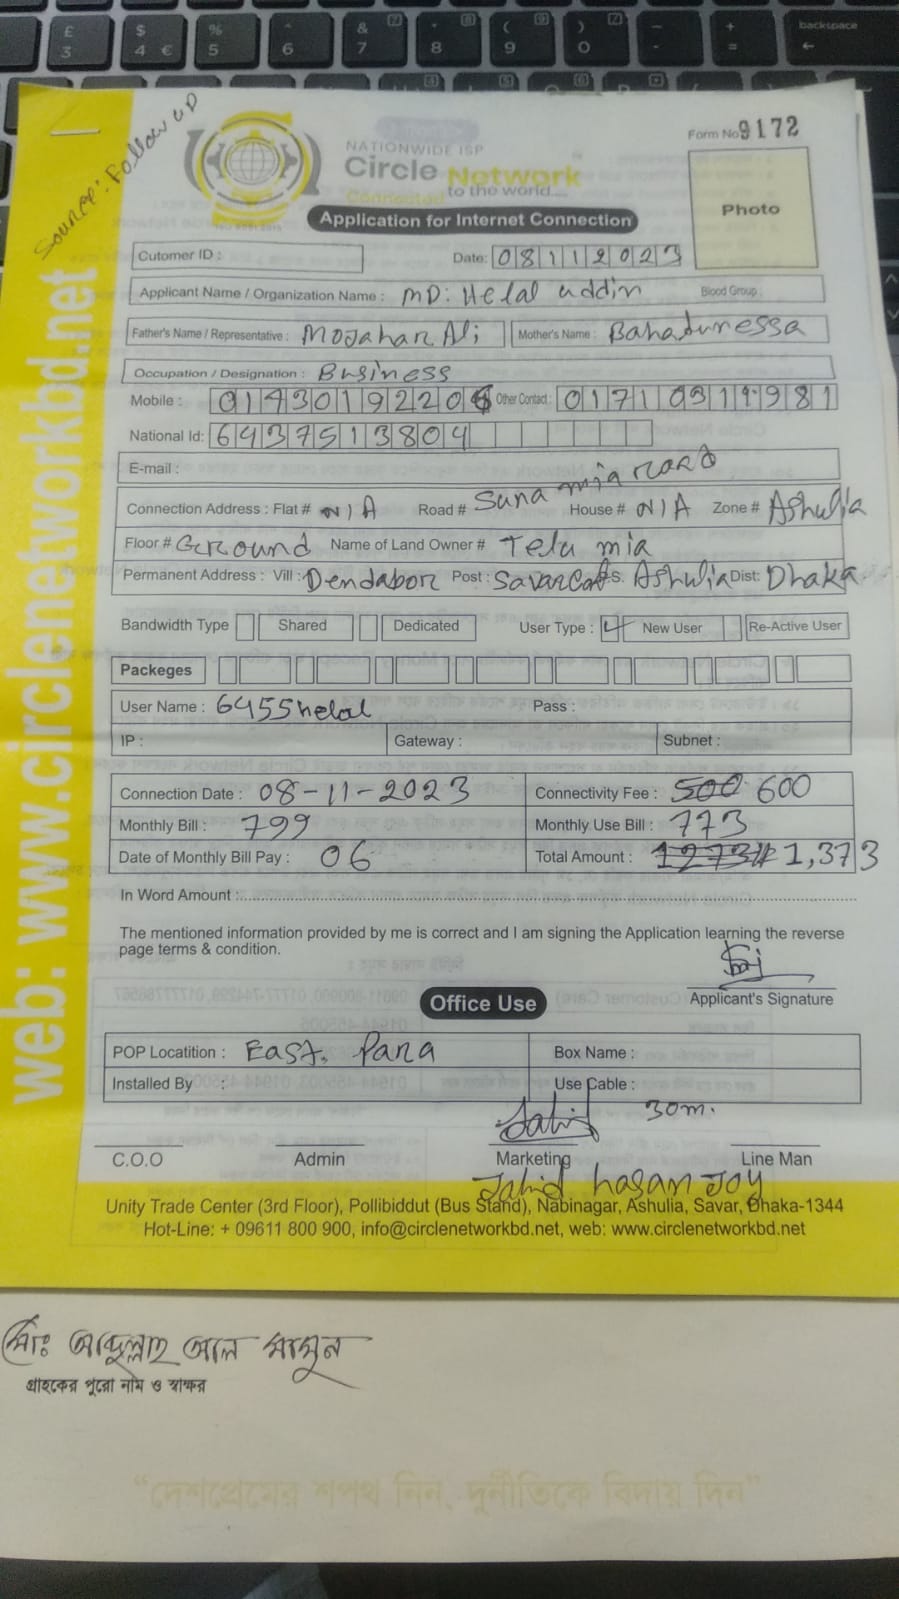 Source: Follow up
Form No 9172
NATIONWIDE ISP
Circle Network
Connected to the world...
Photo
Application for Internet Connection
Cutomer ID :
Date: 08112023
Applicant Name / Organization Name : MD: Helal uddin Blood Group :
Father's Name / Representative : Mojahar Ali Mother's Name : Bahatunessa
Occupation / Designation : Business
Mobile : Other Contact :
National Id: 6437513804
E-mail :
Connection Address : Flat # N/A Road # Suna mia road House # N/A Zone # Ashulia
Floor # Ground Name of Land Owner # Telu mia
Permanent Address : Vill : Dendabor Post : Ashulia Dist: Dhaka
Bandwidth Type Shared Dedicated User Type : New User Re-Active User
Packeges
User Name : 6455helal Pass :
IP : Gateway : Subnet :
Connection Date : 08-11-2023 Connectivity Fee : 500 600
Monthly Bill : 799 Monthly Use Bill : 773
Date of Monthly Bill Pay : 06 Total Amount : 1273 1,373
In Word Amount :
The mentioned information provided by me is correct and I am signing the Application learning the reverse
page terms & condition.
Applicant's Signature
Office Use
POP Locatition : East, Para Box Name :
Installed By : Use Cable :
Jahid 30m.
C.O.O Admin Marketing Line Man
Jahid hasan Joy
Unity Trade Center (3rd Floor), Pollibiddut (Bus Stand), Nabinagar, Ashulia, Savar, Dhaka-1344
Hot-Line: + 09611 800 900, info@circlenetworkbd.net, web: www.circlenetworkbd.net
web: www.circlenetworkbd.net
মোঃ আব্দুল্লাহ আল মামুন
গ্রাহকের পুরো নাম ও স্বাক্ষর
“দেশপ্রেমের শপথ নিন, দুর্নীতিকে বিদায় দিন”